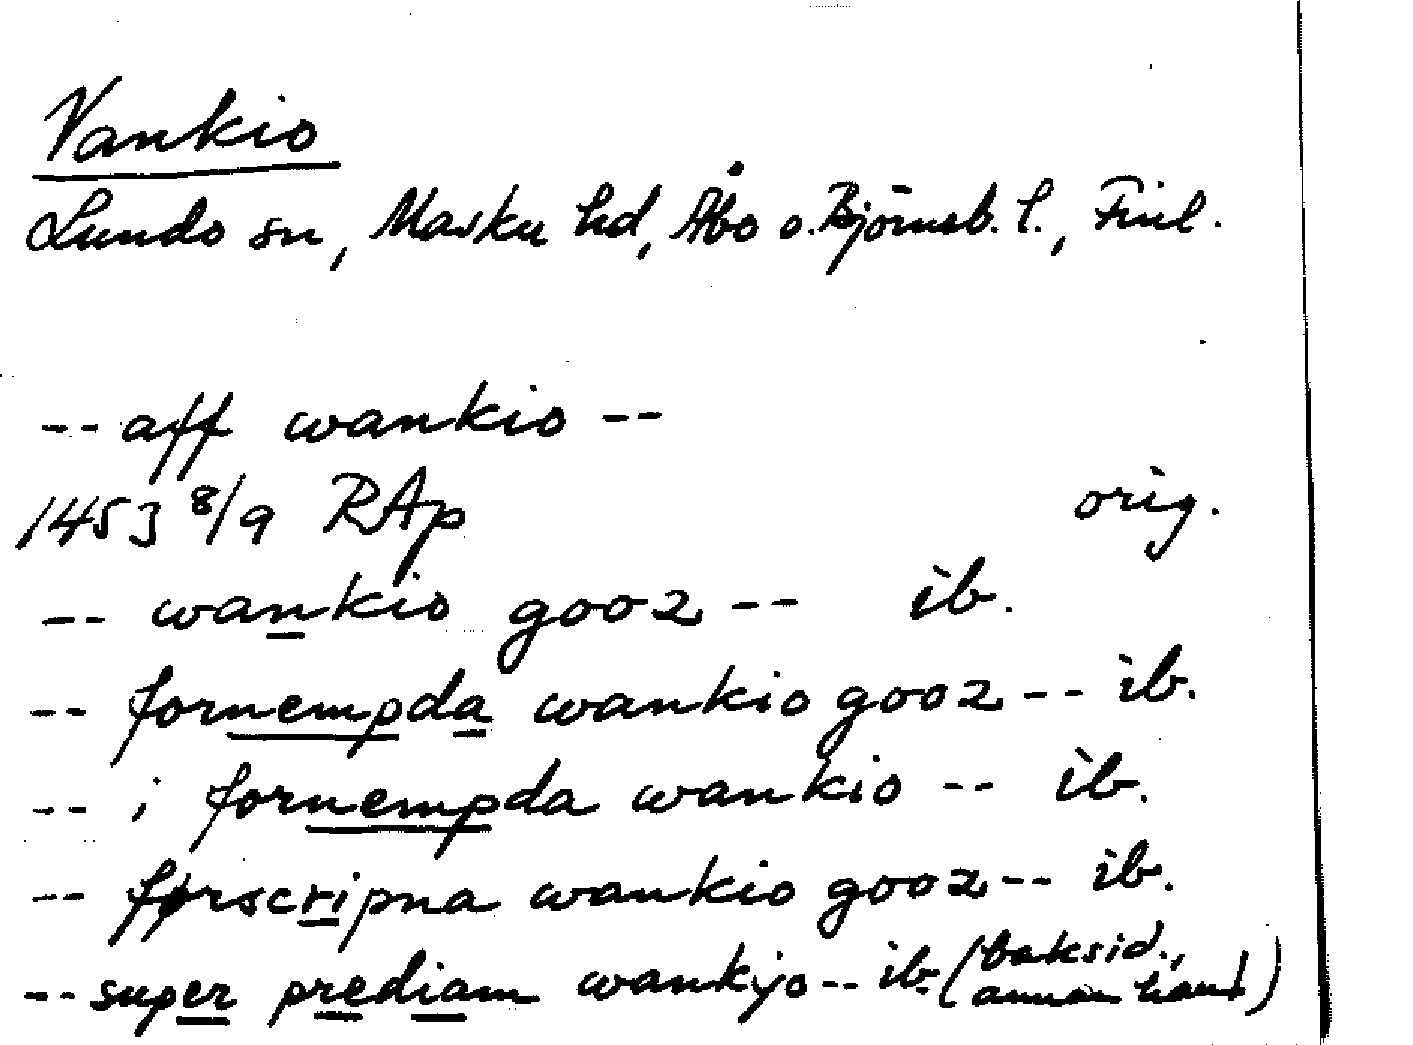 Vankio
Lundo sn, Masku hd, Åbo o. Björneb. l., Finl.
-- aff wankio --
1453 8/9 RAp orig.
-- wankio gooz -- ib.
-- fornempda wankio gooz -- ib.
-- i fornempda wankio -- ib.
-- forscripna wankio gooz -- ib.
-- super prediam wankyo -- ib. (baksid., annan hand)